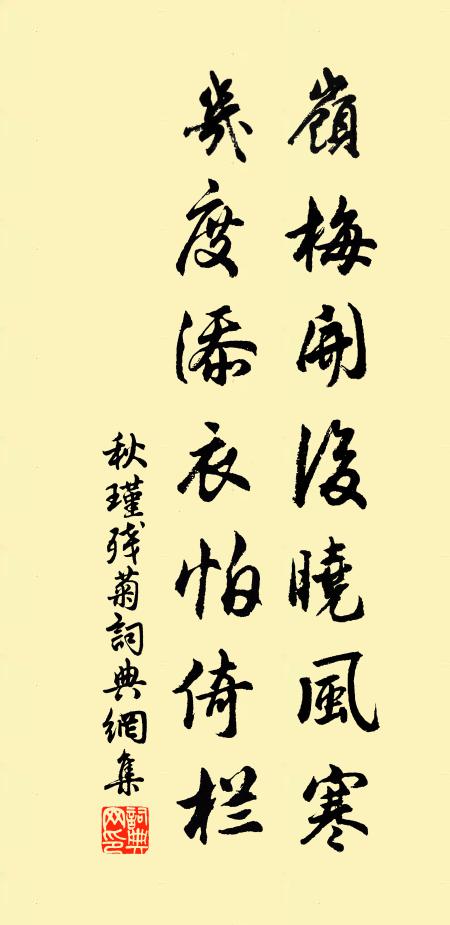 嶺梅開後曉風寒
幾度添衣怕倚栏
秋瑾残菊詞典網集
詞典網印